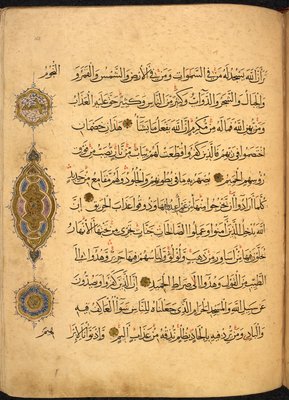 تر أن الله يسجد له من في السموات ومن في الأرض والشمس والقمر والنجوم
والجبال والشجر والدواب وكثير من الناس وكثير حق عليه العذاب
ومن يهن الله فما له من مكرم إن الله يفعل ما يشاء هذان خصمان
اختصموا في ربهم فالذين كفروا قطعت لهم ثياب من نار يصب من فوق
رؤسهم الحميم يصهر به ما في بطونهم والجلود ولهم مقامع من حديد
كلما أرادوا أن يخرجوا منها من غم أعيدوا فيها وذوقوا عذاب الحريق إن
الله يدخل الذين آمنوا وعملوا الصالحات جنات تجري من تحتها الأنهار
يحلون فيها من أساور من ذهب ولؤلؤا ولباسهم فيها حرير وهدوا إلى
الطيب من القول وهدوا إلى صراط الحميد إن الذين كفروا ويصدون
عن سبيل الله والمسجد الحرام الذي جعلناه للناس سواء العاكف فيه
والباد ومن يرد فيه بإلحاد بظلم نذقه من عذاب أليم وإذ بوأنا لإبر هيم